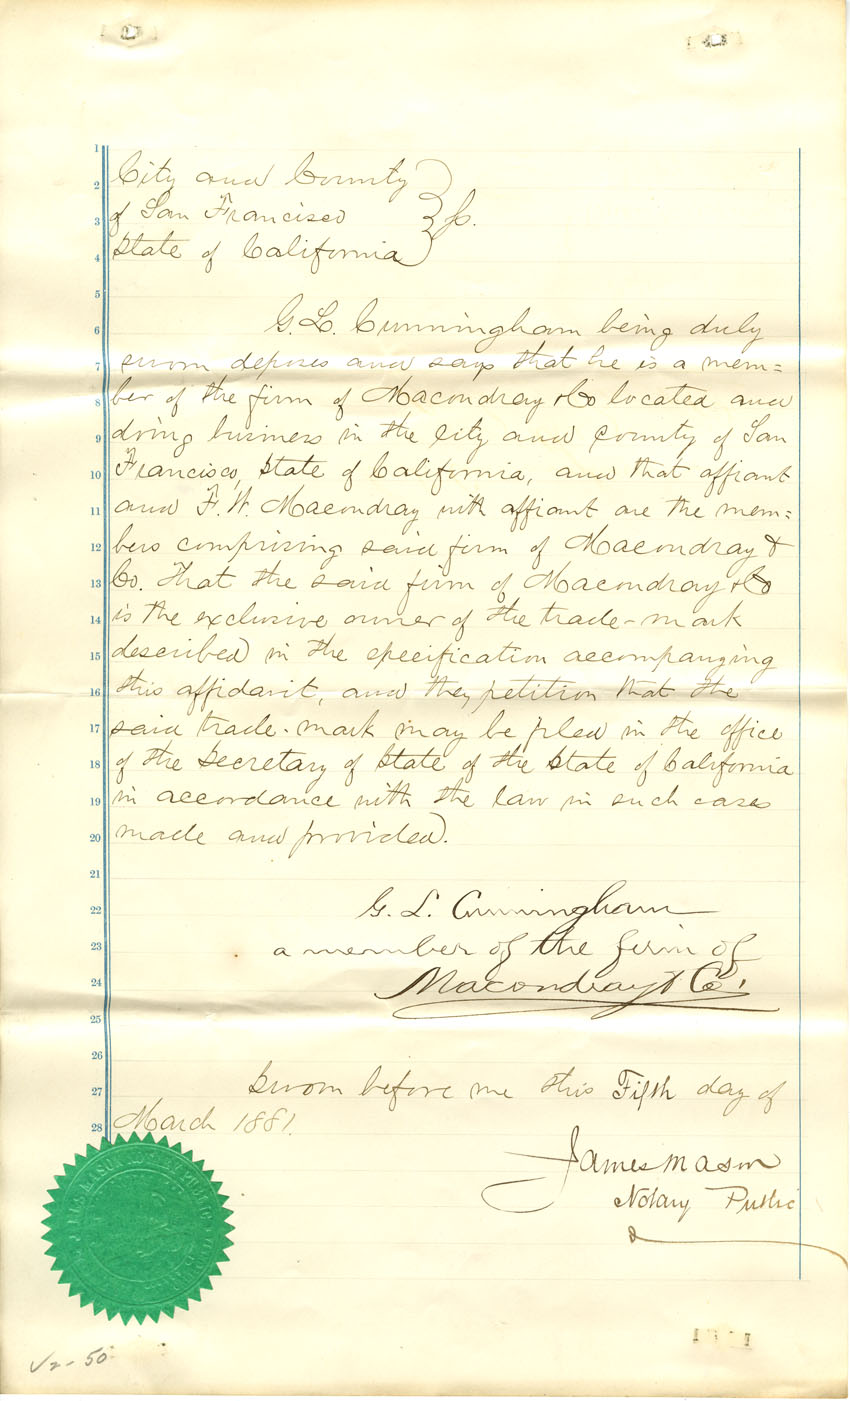 1
City and County
2
of San Francisco } ss.
3
State of California
4
5
G. L. Cunningham being duly
6
sworn deposes and says that he is a mem=
7
ber of the firm of Macondray & Co located and
8
doing business in the city and county of San
9
Francisco, State of California, and that affiant
10
and F. W. Macondray with affiant are the mem=
11
bers comprising said firm of Macondray &
12
Co. That the said firm of Macondray & Co
13
is the exclusive owner of the trade-mark
14
described in the specification accompanying
15
this affidavit, and they petition that the
16
said trade-mark may be filed in the office
17
of the Secretary of State of the State of California
18
in accordance with the law in such cases
19
made and provided.
20
21
G. L. Cunningham
22
a member of the firm of
23
Macondray & Co.
24
25
26
Sworn before me this Fifth day of
27
March 1881.
28
James Mason
Notary Public
V2-50